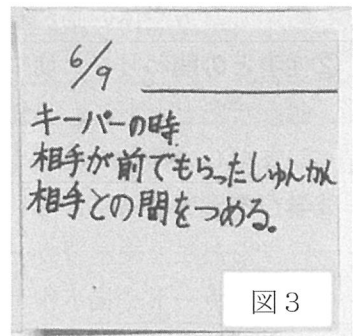 6/9
キーパーの時
相手が前でもらったしゅんかん
相手との間をつめる。
図3